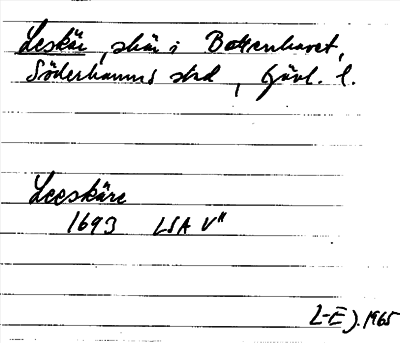 Leskär, skär i Bottenhavet,
Söderhamns stad, Gävl. l.
Leeskäre
1693 LSA V"
L-E J. 1965